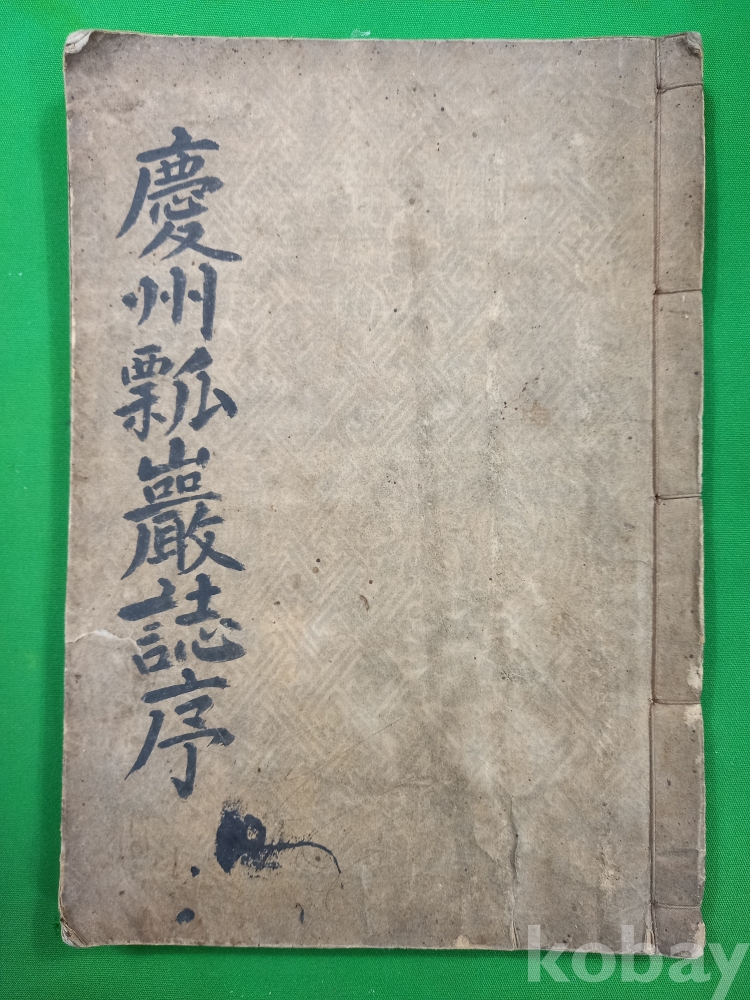 慶州瓢巖誌序
kobay